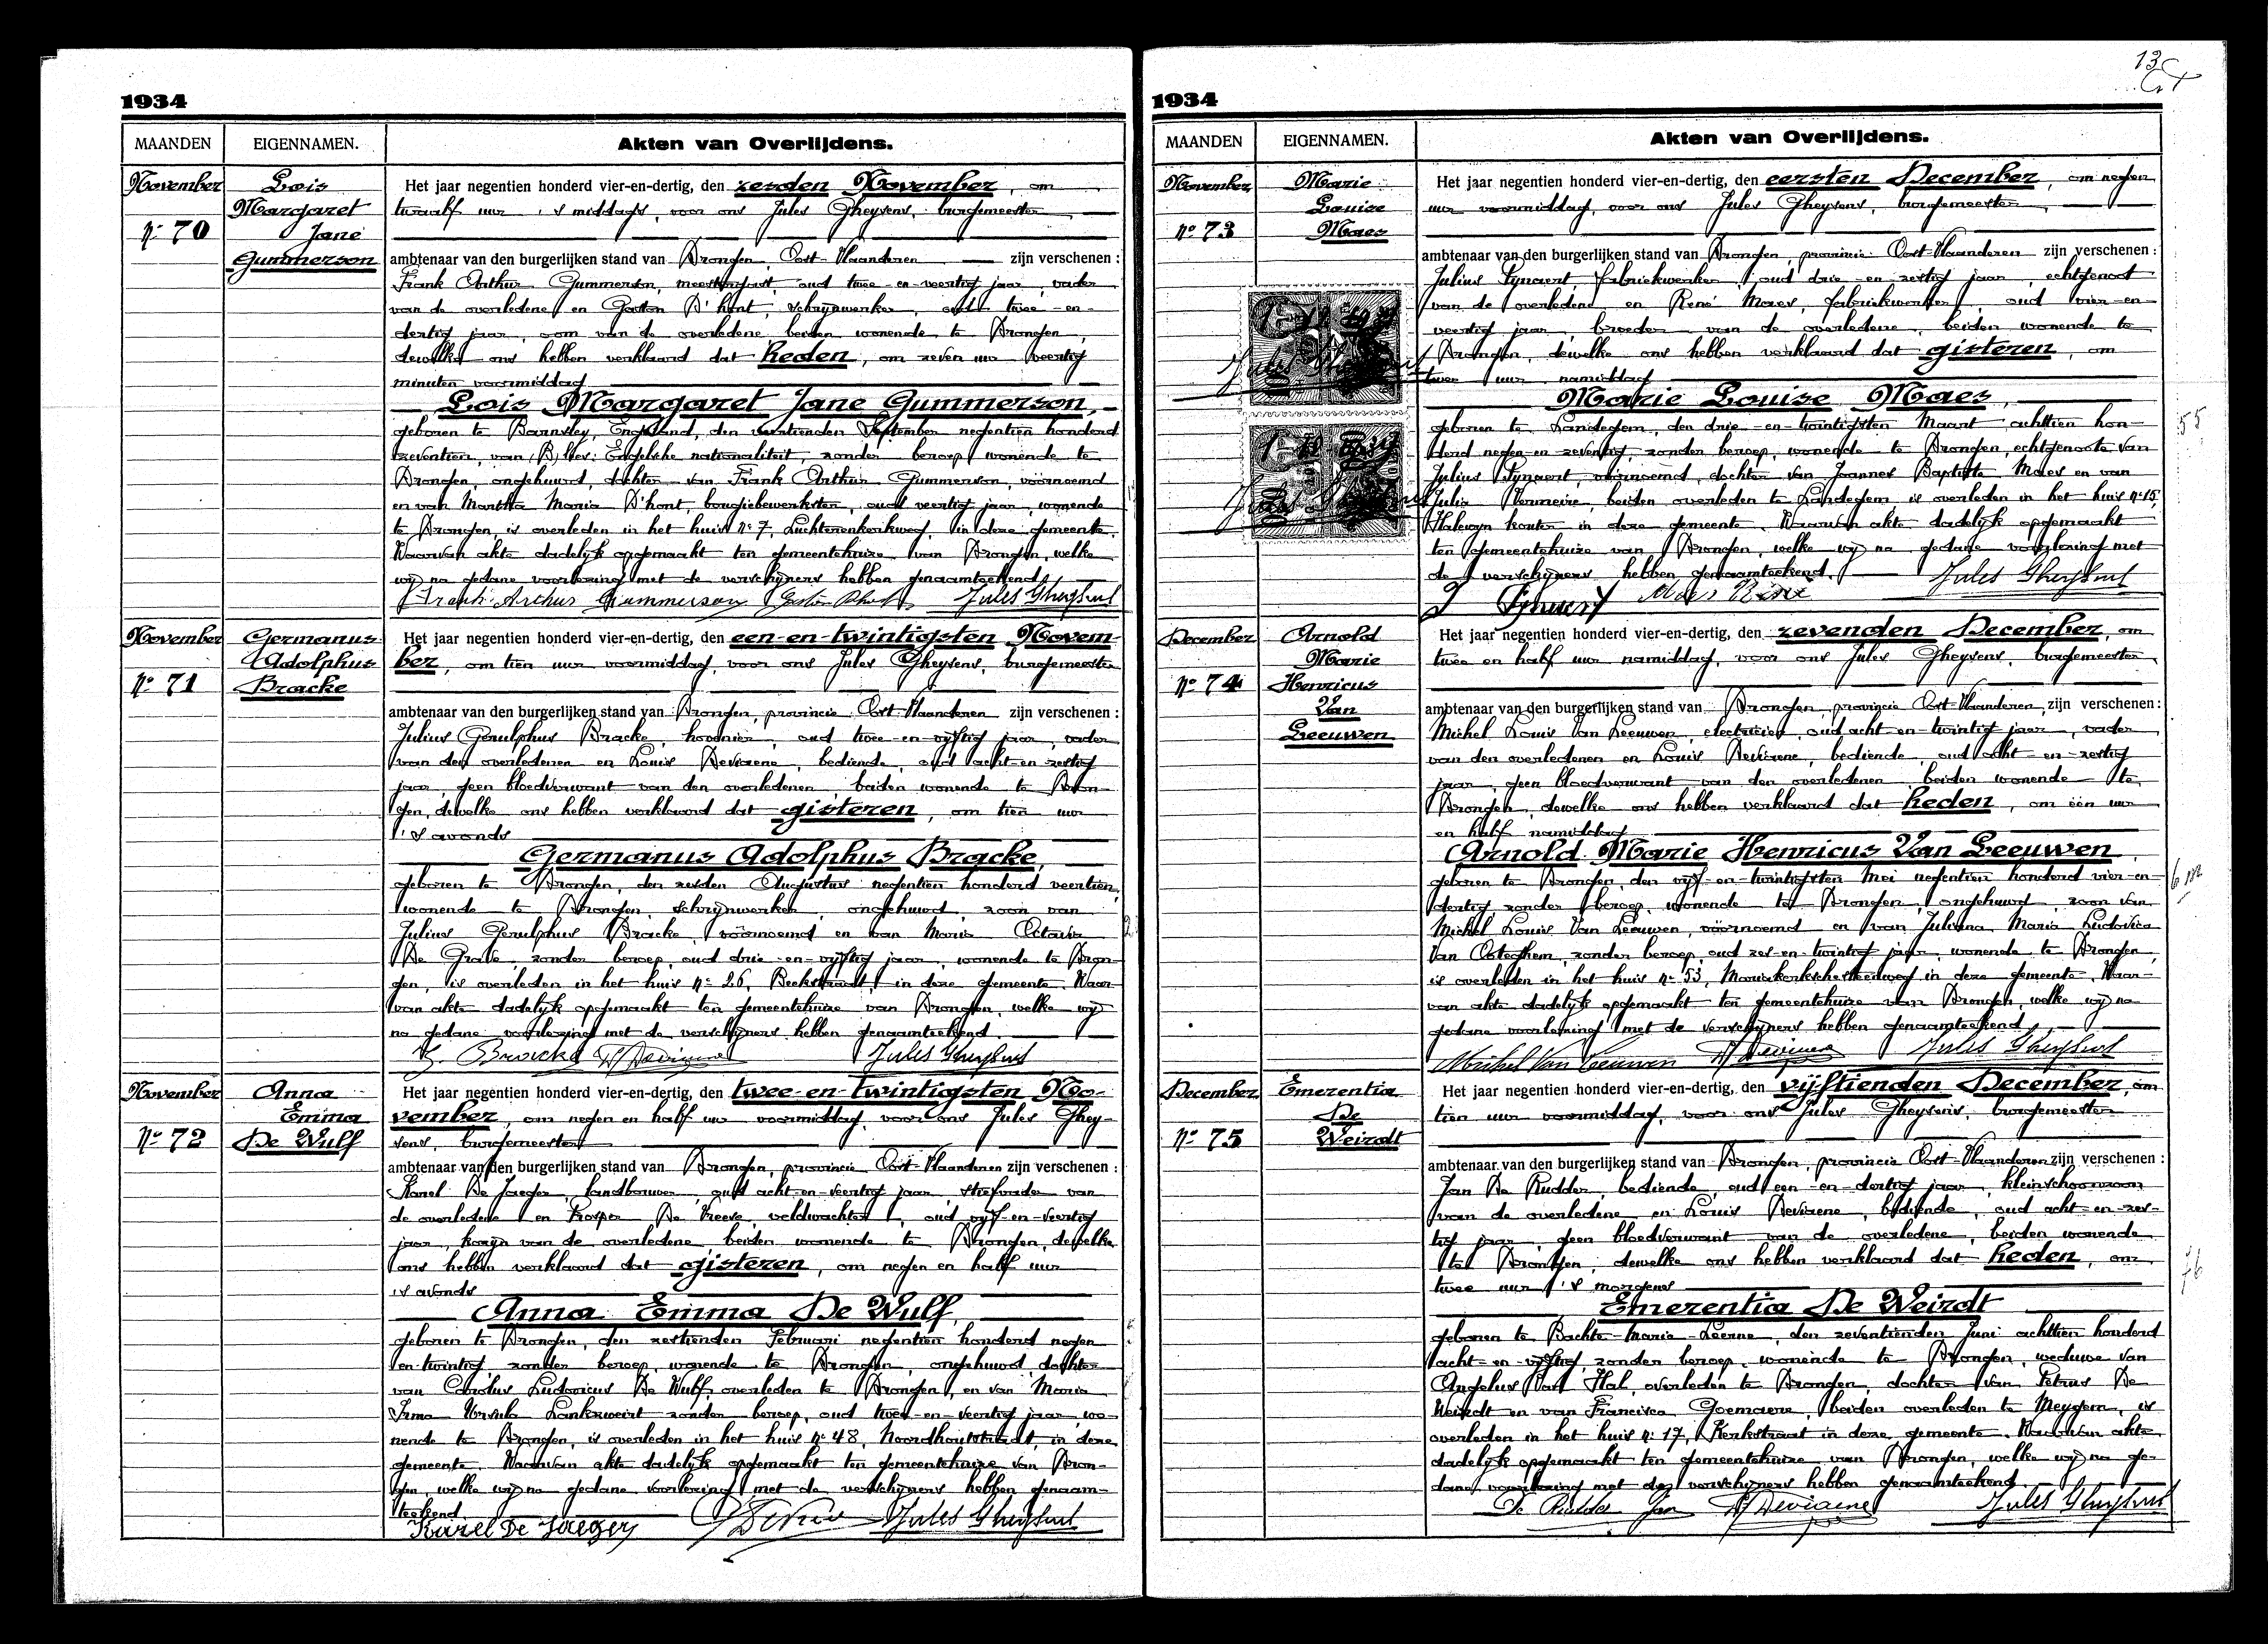 1934
MAANDEN EIGENNAMEN. Akten van Overlijdens.
November
No 70
Lois
Margaret
Jane
Gummerson
Het jaar negentien honderd vier-en-dertig, den zesden November, om
twaalf uur 's middags, voor ons Jules Gheysens, burgemeester
ambtenaar van den burgerlijken stand van Drongen, Oost-Vlaanderen zijn verschenen :
Frank Arthur Gummerson, oud twee-en-veertig jaar, vader
van de overledene en Gaston D'hont, schrijnwerker, oud twee-en-
dertig jaar, oom van de overledene, beiden wonende te Drongen,
dewelke ons hebben verklaard dat heden, om zeven uur veertig
minuten voormiddag
Lois Margaret Jane Gummerson,
geboren te Barnsley, Engeland, den September negentien honderd
zeventien, van Engelsche nationaliteit, zonder beroep, wonende te
Drongen, ongehuwd, dochter van Frank Arthur Gummerson, vóórnoemd
en van Martha Maria D'hont, bougiebewerkster, oud veertig jaar, wonende
te Drongen, is overleden in het huis No 7, Luchterenkerkweg, in deze gemeente.
Waarvan akte dadelijk opgemaakt ten gemeentehuize van Drongen, welke
wij na gedane voorlezing met de verschijners hebben genaamteekend.
Frank Arthur Gummerson Gaston D'hont Jules Gheysens
November
No 71
Germanus
Adolphus
Bracke
Het jaar negentien honderd vier-en-dertig, den een-en-twintigsten Novem-
ber, om tien uur voormiddag, voor ons Jules Gheysens, burgemeester
ambtenaar van den burgerlijken stand van Drongen, provincie Oost-Vlaanderen zijn verschenen :
Julius Gerulphus Bracke, hovenier, oud twee-en-vijftig jaar, vader
van den overledenen en Louis Deviaene, bediende, oud acht-en-zestig
jaar, geen bloedverwant van den overledenen, beiden wonende te Dron-
gen, dewelke ons hebben verklaard dat gisteren, om tien uur
's avonds
Germanus Adolphus Bracke,
geboren te Drongen, den zesden Augustus negentien honderd veertien,
wonende te Drongen, schrijnwerker, ongehuwd, zoon van
Julius Gerulphus Bracke, vóórnoemd en van Maria Octavia
De Grave, zonder beroep, oud drie-en-vijftig jaar, wonende te Dron-
gen, is overleden in het huis No 26, Beekstraat, in deze gemeente. Waar-
van akte dadelijk opgemaakt ten gemeentehuize van Drongen, welke wij
na gedane voorlezing met de verschijners hebben genaamteekend.
Bracke Deviaene Jules Gheysens
November
No 72
Anna
Emma
De Wulf
Het jaar negentien honderd vier-en-dertig, den twee-en-twintigsten No-
vember, om negen en half uur voormiddag, voor ons Jules Ghey-
sens, burgemeester
ambtenaar van den burgerlijken stand van Drongen, provincie Oost-Vlaanderen zijn verschenen :
Karel De Jaeger, landbouwer, oud acht-en-veertig jaar, stiefvader van
de overledene en Prosper De Vreese, veldwachter, oud vijf-en-veertig
jaar, kozijn van de overledene, beiden wonende te Drongen, dewelke
ons hebben verklaard dat gisteren, om negen en half uur
's avonds
Anna Emma De Wulf,
geboren te Drongen, den zestienden Februari negentien honderd negen
en-twintig, zonder beroep, wonende te Drongen, ongehuwd, dochter
van Carolus Ludovicus De Wulf, overleden te Drongen, en van Maria
Irma Ursula Lankzweirt zonder beroep, oud twee-en-veertig jaar, wo-
nende te Drongen, is overleden in het huis No 48, Noordhoutstraat, in deze
gemeente. Waarvan akte dadelijk opgemaakt ten gemeentehuize van Dron-
gen, welke wij na gedane voorlezing met de verschijners hebben genaam-
teekend.
Karel De Jaeger Jules Gheysens
13
1934
MAANDEN EIGENNAMEN. Akten van Overlijdens.
November
No 73
Marie
Louise
Maes
Het jaar negentien honderd vier-en-dertig, den eersten December, om negen
uur voormiddag, voor ons Jules Gheysens, burgemeester,
ambtenaar van den burgerlijken stand van Drongen, provincie Oost-Vlaanderen zijn verschenen :
Julius Tynaert, fabriekwerker, oud drie-en-zestig jaar, echtgenoot
van de overledene en René Maes, fabriekwerker, oud vier-en-
veertig jaar, broeder van de overledene, beiden wonende te
Drongen, dewelke ons hebben verklaard dat gisteren, om
twee uur namiddag
Marie Louise Maes,
geboren te Landegem, den drie-en-twintigsten Maart achttien hon-
derd negen-en-zeventig, zonder beroep, wonende te Drongen, echtgenoote van
Julius Tynaert, vóórnoemd, dochter van Joannes Baptiste Maes en van
Julia Vermeire, beiden overleden te Landegem is overleden in het huis No 15,
Halewyn kouter in deze gemeente. Waarvan akte dadelijk opgemaakt
ten gemeentehuize van Drongen, welke wij na gedane voorlezing met
de verschijners hebben genaamteekend.
J Tynaert Maes René Jules Gheysens
55
December
No 74
Arnold
Marie
Henricus
Van
Leeuwen
Het jaar negentien honderd vier-en-dertig, den zevenden December, om
twee en half uur namiddag, voor ons Jules Gheysens, burgemeester
ambtenaar van den burgerlijken stand van Drongen, provincie Oost-Vlaanderen, zijn verschenen :
Michel Louis Van Leeuwen, electricien, oud acht-en-twintig jaar, vader
van den overledenen en Louis Deviaene, bediende, oud acht-en-zestig
jaar, geen bloedverwant van den overledenen, beiden wonende te
Drongen, dewelke ons hebben verklaard dat heden, om één uur
en half namiddag
Arnold Marie Henricus Van Leeuwen,
geboren te Drongen, den vijf-en-twintigsten Mei negentien honderd vier-en-
dertig, zonder beroep, wonende te Drongen, ongehuwd, zoon van
Michel Louis Van Leeuwen, vóórnoemd en van Juliana Maria Ludovica
Van Osteghem, zonder beroep, oud zes-en-twintig jaar, wonende te Drongen,
is overleden in het huis No 53, Mariakerksche steenweg in deze gemeente. Waar-
van akte dadelijk opgemaakt ten gemeentehuize van Drongen, welke wij na
gedane voorlezing met de verschijners hebben genaamteekend.
Michel Van Leeuwen Deviaene Jules Gheysens
6 m
December
No 75
Emerentia
De
Weirdt
Het jaar negentien honderd vier-en-dertig, den vijftienden December, om
tien uur voormiddag, voor ons Jules Gheysens, burgemeester
ambtenaar van den burgerlijken stand van Drongen, provincie Oost-Vlaanderen zijn verschenen :
Jan De Rudder, bediende, oud een-en-dertig jaar, kleinschoonzoon
van de overledene en Louis Deviaene, bediende, oud acht-en-zes-
tig jaar, geen bloedverwant van de overledene, beiden wonende
te Drongen, dewelke ons hebben verklaard dat heden, om
twee uur 's morgens
Emerentia De Weirdt
geboren te Bachte-Maria-Leerne, den zeventienden Juni achttien honderd
acht-en-vijftig, zonder beroep, wonende te Drongen, weduwe van
Angelus Van Hal, overleden te Drongen, dochter van Petrus De
Weirdt en van Francisca Goemaere, beiden overleden te Meygem, is
overleden in het huis No 17, Kerkstraat in deze gemeente. Waarvan akte
dadelijk opgemaakt ten gemeentehuize van Drongen, welke wij na ge-
dane voorlezing met de verschijners hebben genaamteekend.
De Rudder Jan Deviaene Jules Gheysens
76